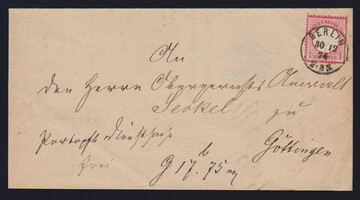 BERLIN
30 12
74
2-3N
An
den Herrn Obergerichts Anwalt
zu
Portopfl Dienstsache
frei
Göttingen
G 17. 75